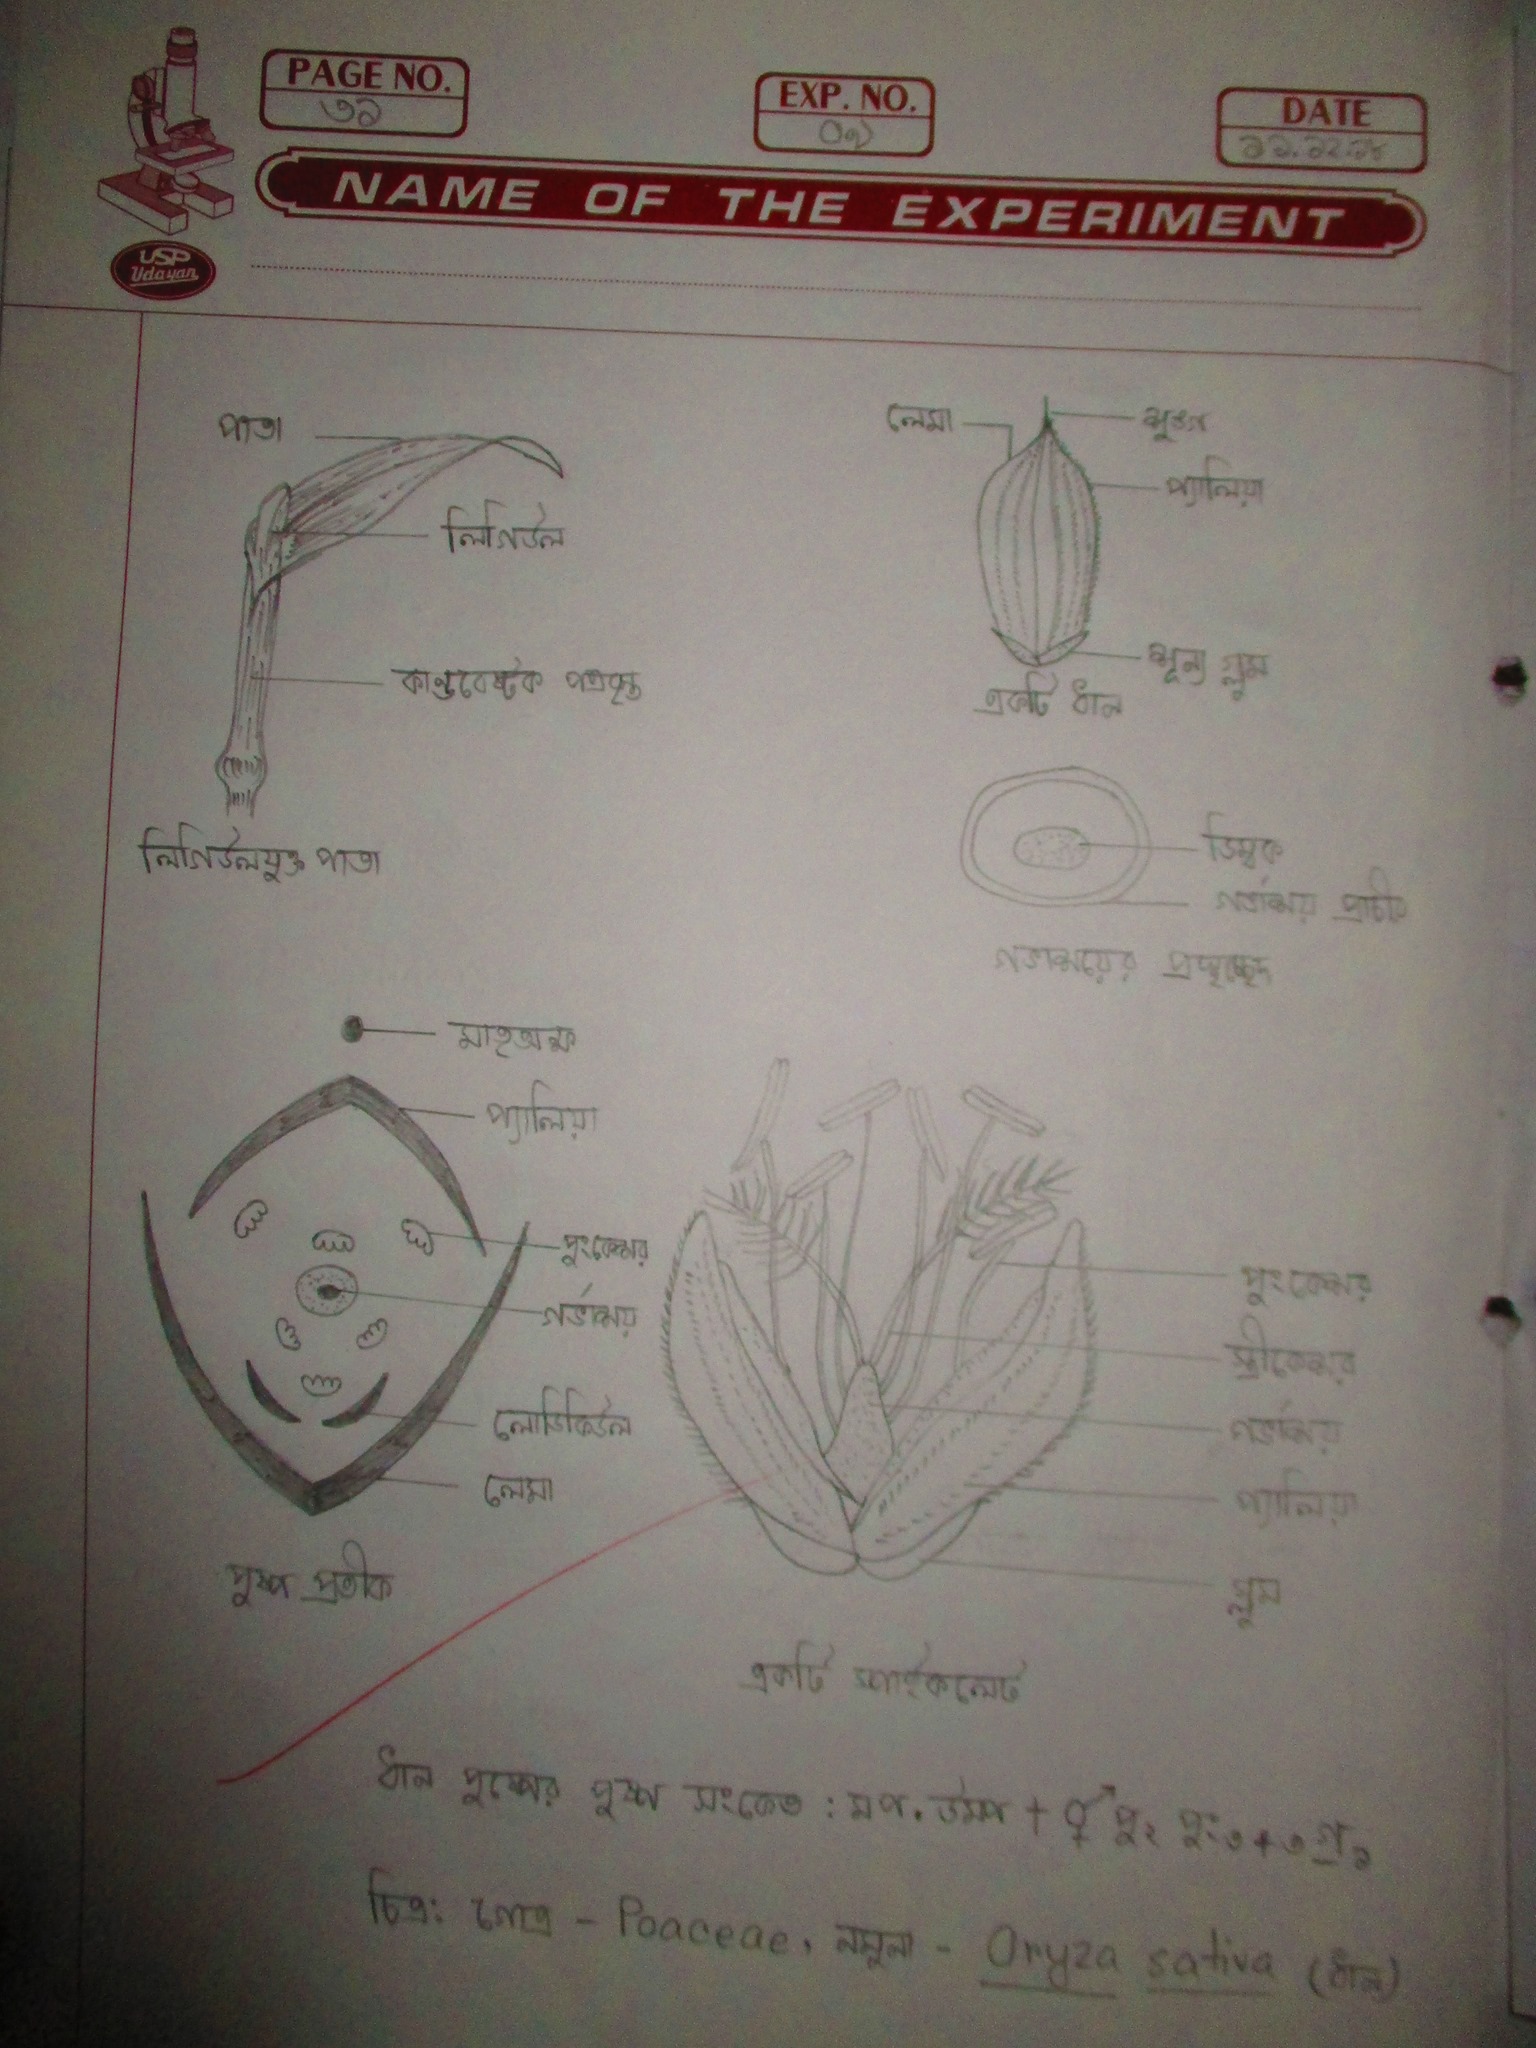 PAGE NO.
৩১
EXP. NO.
০৭
DATE
১১.১২.১৮
NAME OF THE EXPERIMENT
USP
Udayan
পাতা
লিগিউল
কাণ্ডবেষ্টক পত্রবৃন্ত
লিগিউলযুক্ত পাতা
লেমা
শুঙ্গ
প্যালিয়া
শূন্য গ্লুম
একটি ধান
ডিম্বক
গর্ভাশয় প্রাচীর
গর্ভাশয়ের প্রস্থচ্ছেদ
মাতৃঅক্ষ
প্যালিয়া
পুংকেশর
গর্ভাশয়
লোডিকিউল
লেমা
পুষ্প প্রতীক
পুংকেশর
স্ত্রীকেশর
গর্ভাশয়
প্যালিয়া
গ্লুম
একটি স্পাইকলেট
ধান পুষ্পের পুষ্প সংকেত : মপ. উমপ + ⚥ পু২ পুং৩+৩ গ১
চিত্র: গোত্র - Poaceae, নমুনা - Oryza sativa (ধান)